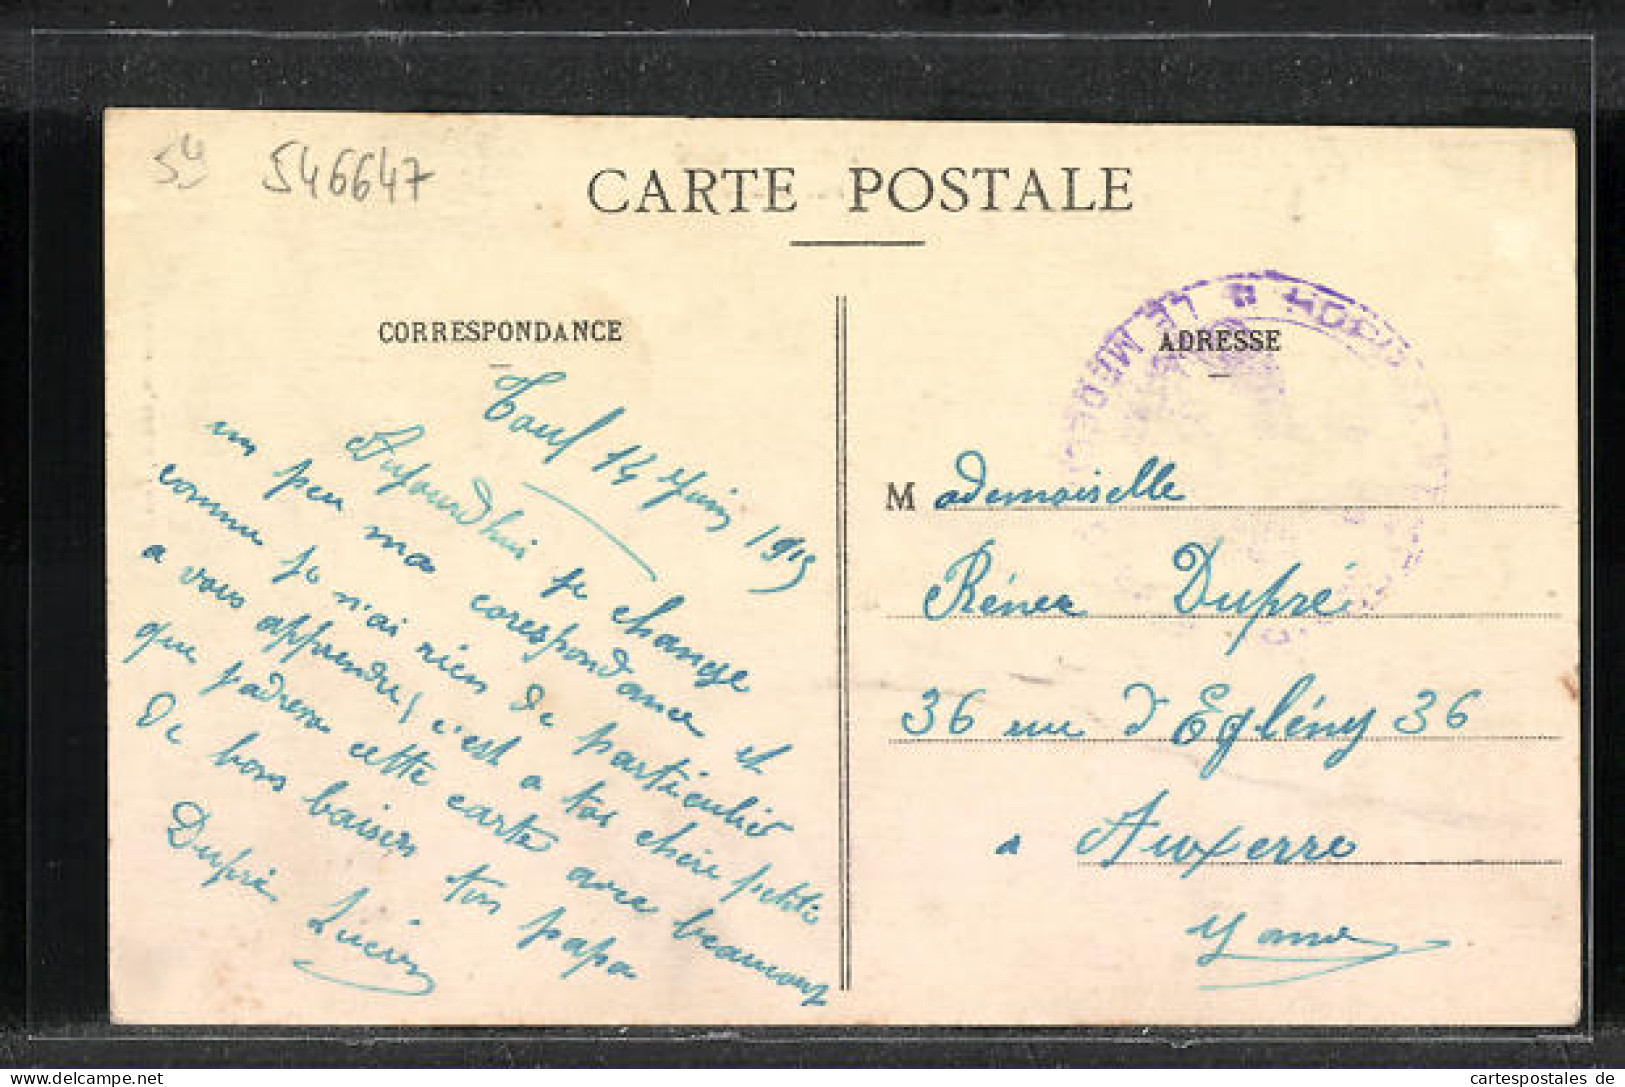 5u 546647
CARTE POSTALE
CORRESPONDANCE
Toul 14 Juin 1915
Aujourdhui je change
un peu ma corespondance et
comme je n'ai rien de particulier
a vous apprendre, c'est a toi chère petite
que j'adresse cette carte avec beaucoup
de bons baisers ton papa
Dupré Lucien
ADRESSE
LE MEDECIN
Mademoiselle
Rénée Dupré
36 rue d'Eglény 36
a Auxerre
Yonne
www.cartespostales.de
cartespostales de